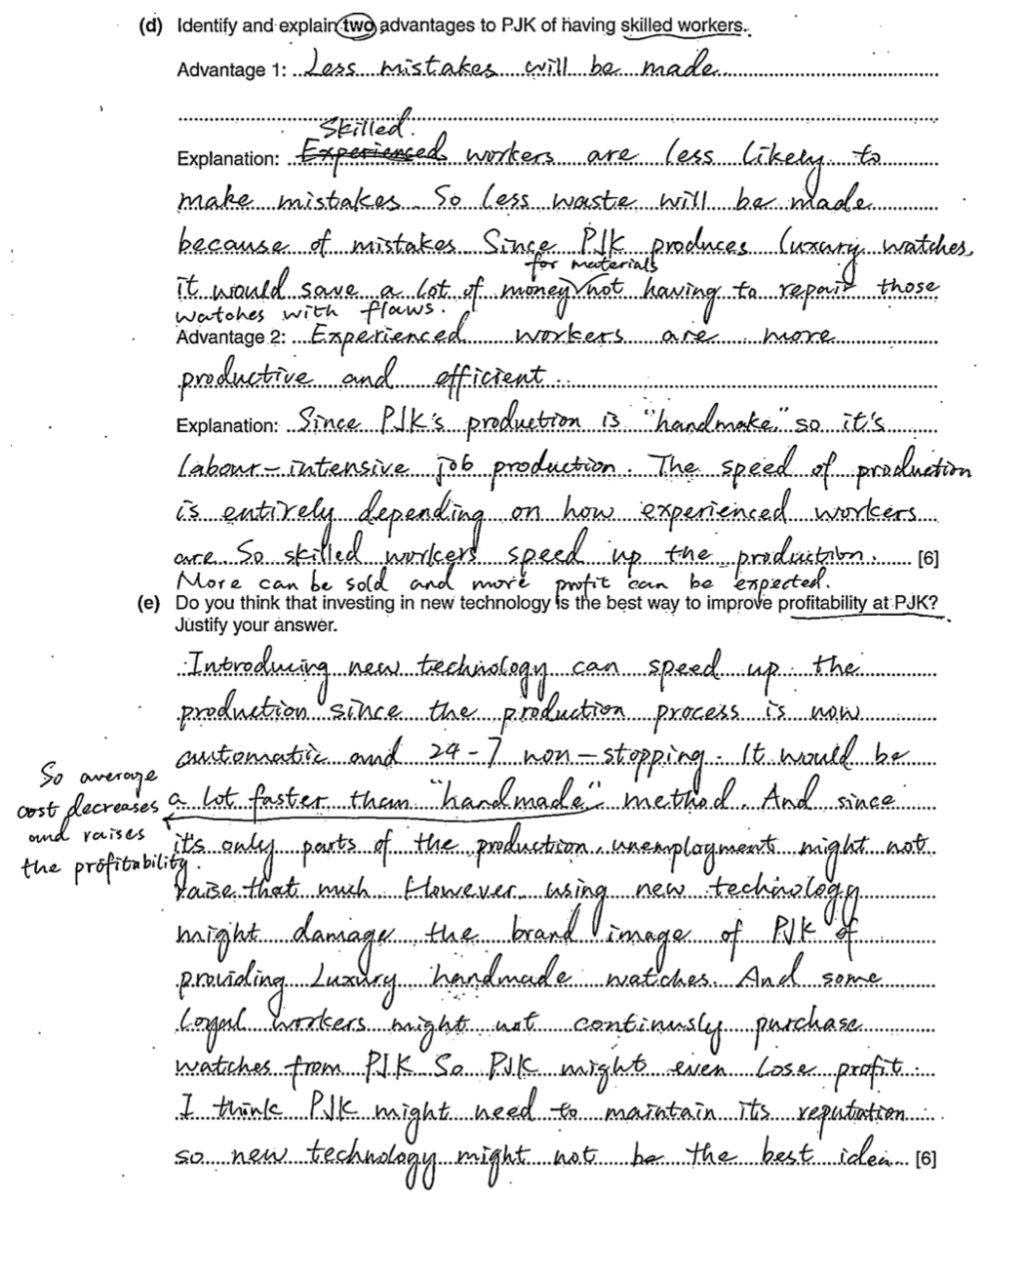 (d) Identify and explain two advantages to PJK of having skilled workers.
Advantage 1: Less mistakes will be made
Skilled.
Explanation: Experienced workers are less likely to
make mistakes. So less waste will be made
because of mistakes. Since PJK produces luxury watches,
for materials
it would save a lot of money not having to repair those
watches with flaws.
Advantage 2: Experienced workers are more
productive and efficient.
Explanation: Since PJK's production is "handmake," so it's
labour-intensive job production. The speed of production
is entirely depending on how experienced workers
are. So skilled workers speed up the production. [6]
More can be sold and more profit can be expected.
(e) Do you think that investing in new technology is the best way to improve profitability at PJK?
Justify your answer.
Introducing new technology can speed up the
production since the production process is now
automatic and 24-7 non-stopping. It would be
a lot faster than "handmade" method. And since
So average
cost decreases
and raises
the profitability.
it's only parts of the production, unemployment might not
raise that much. However using new technology
might damage the brand image of PJK of
providing Luxury handmade watches. And some
loyal workers might not continusly purchase
watches from PJK. So PJK might even lose profit.
I think PJK might need to maintain its reputation
so new technology might not be the best idea. [6]